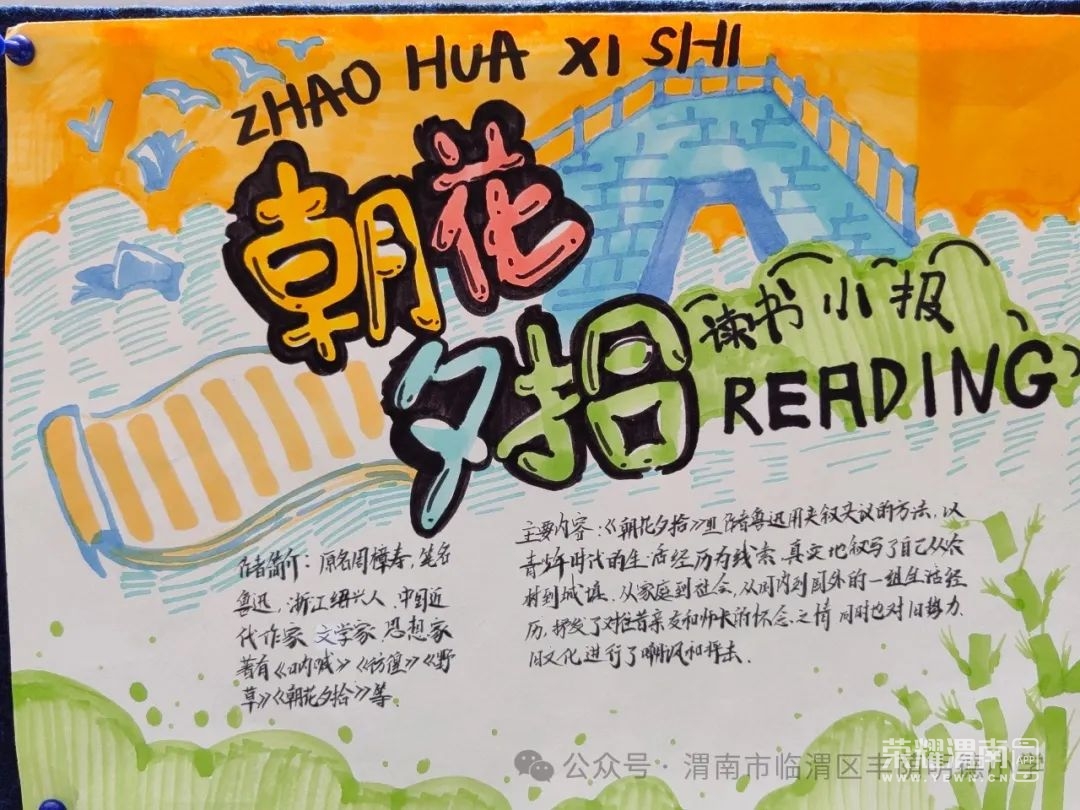 ZHAO HUA XI SHI
朝花
夕拾
读书小报
READING
作者简介：原名周樟寿，笔名
鲁迅，浙江绍兴人，中国近
代作家 文学家 思想家
著有《呐喊》《彷徨》《野
草》《朝花夕拾》等
主要内容：《朝花夕拾》是作者鲁迅用夹叙夹议的方法，以
青少年时代的生活经历为线索，真实地叙写了自己从农
村到城镇，从家庭到社会，从国内到国外的一组生活经
历，抒发了对往昔亲友和师长的怀念之情 同时也对旧势力，
旧文化进行了嘲讽和抨击．
公众号·渭南市临渭区丰
小学
荣耀渭南
APP
WWW.YEWN.CN